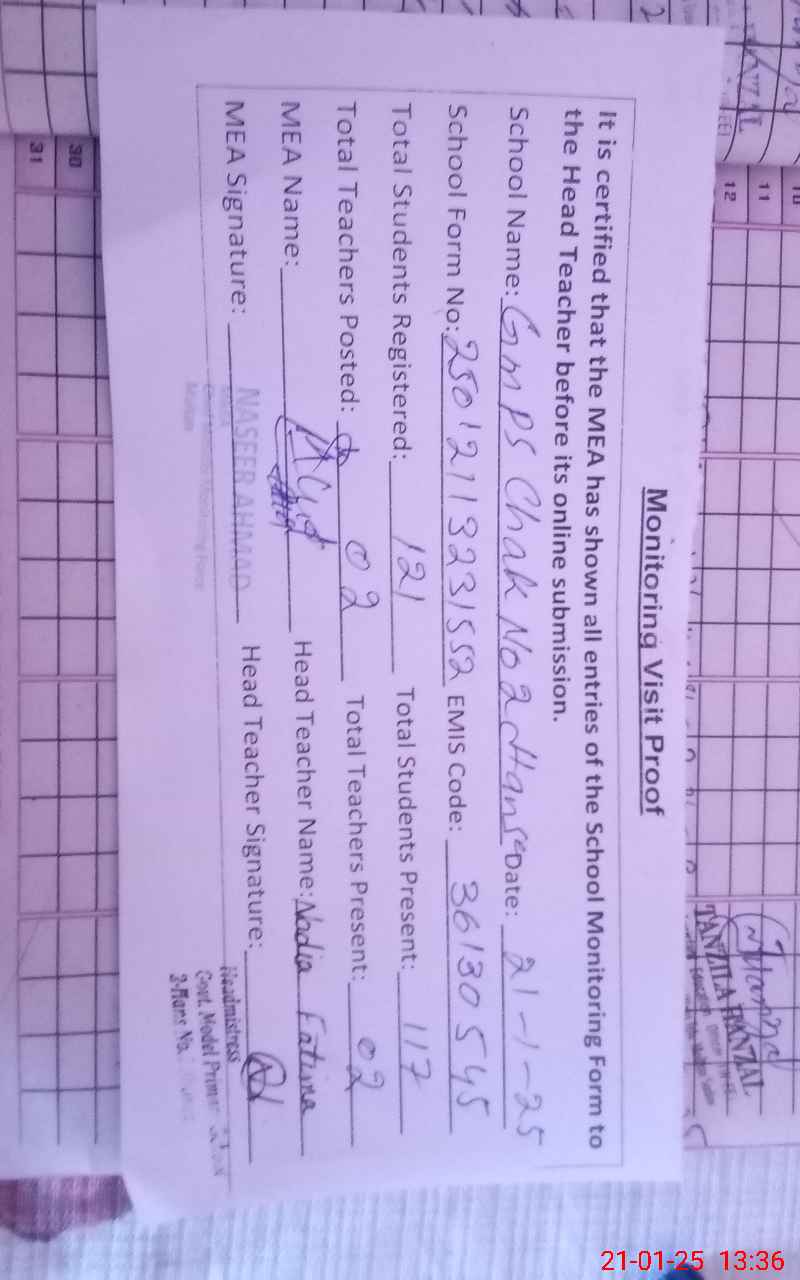 Monitoring Visit Proof
It is certified that the MEA has shown all entries of the School Monitoring Form to
the Head Teacher before its online submission.
School Name: GMPS Chak No 2 Hanse Date: 21-1-25
School Form No: 25012113231552 EMIS Code: 36130545
Total Students Registered: 121 Total Students Present: 117
Total Teachers Posted: 02 Total Teachers Present: 02
MEA Name: Head Teacher Name: Nadia Fatima
MEA Signature: NASEER AHMAD Head Teacher Signature:
Headmistress
Govt. Model Primary School
TANZILA TANZIAL
11
12
30
31
21-01-25 13:36